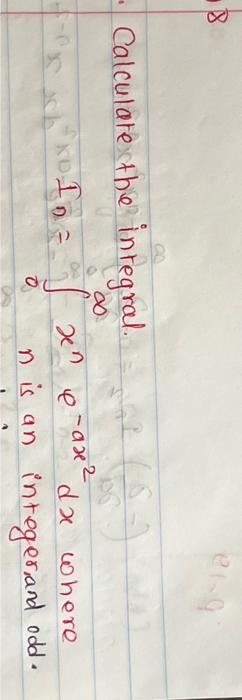 8
Calculate the integral.
∞
In = ∫ xⁿ e^-ax² dx where
0
n is an integer and odd.